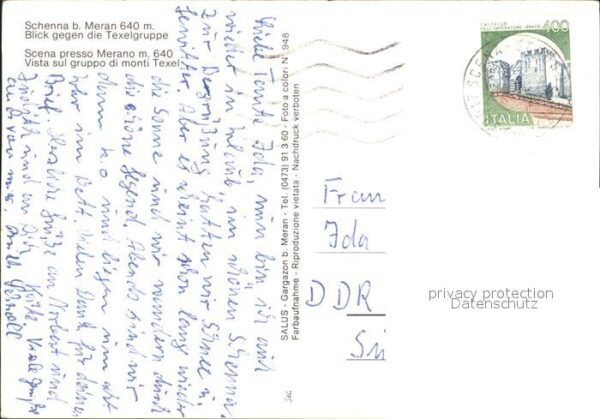 Schenna b. Meran 640 m.
Blick gegen die Texelgruppe
Scena presso Merano m. 640
Vista sul gruppo di monti Texel
Liebe Tante Ida, nun bin ich auch
wieder in Urlaub im schönen Schenna.
Zur Begrüßung hatten wir Schnee u.
Gewitter. Aber es scheint schon lang wieder
die Sonne und wir wandern durch
die schöne Gegend. Abends sind wir
dann k.o. und liegen um acht
Uhr im Bett. Vielen Dank für deinen
Brief. Herzliche Grüße an Norbert und
und an Dich
Viele Grüße
auch
SALUS - Gargazon b. Meran - Tel. (0473) 91 3 60 - Foto a colori N° 948
Farbaufnahme - Riproduzione vietata - Nachdruck verboten
CASTELLO
DELL'IMPERATORE - PRATO
400
ITALIA
SCENA
Frau
Ida
DDR
privacy protection
Datenschutz